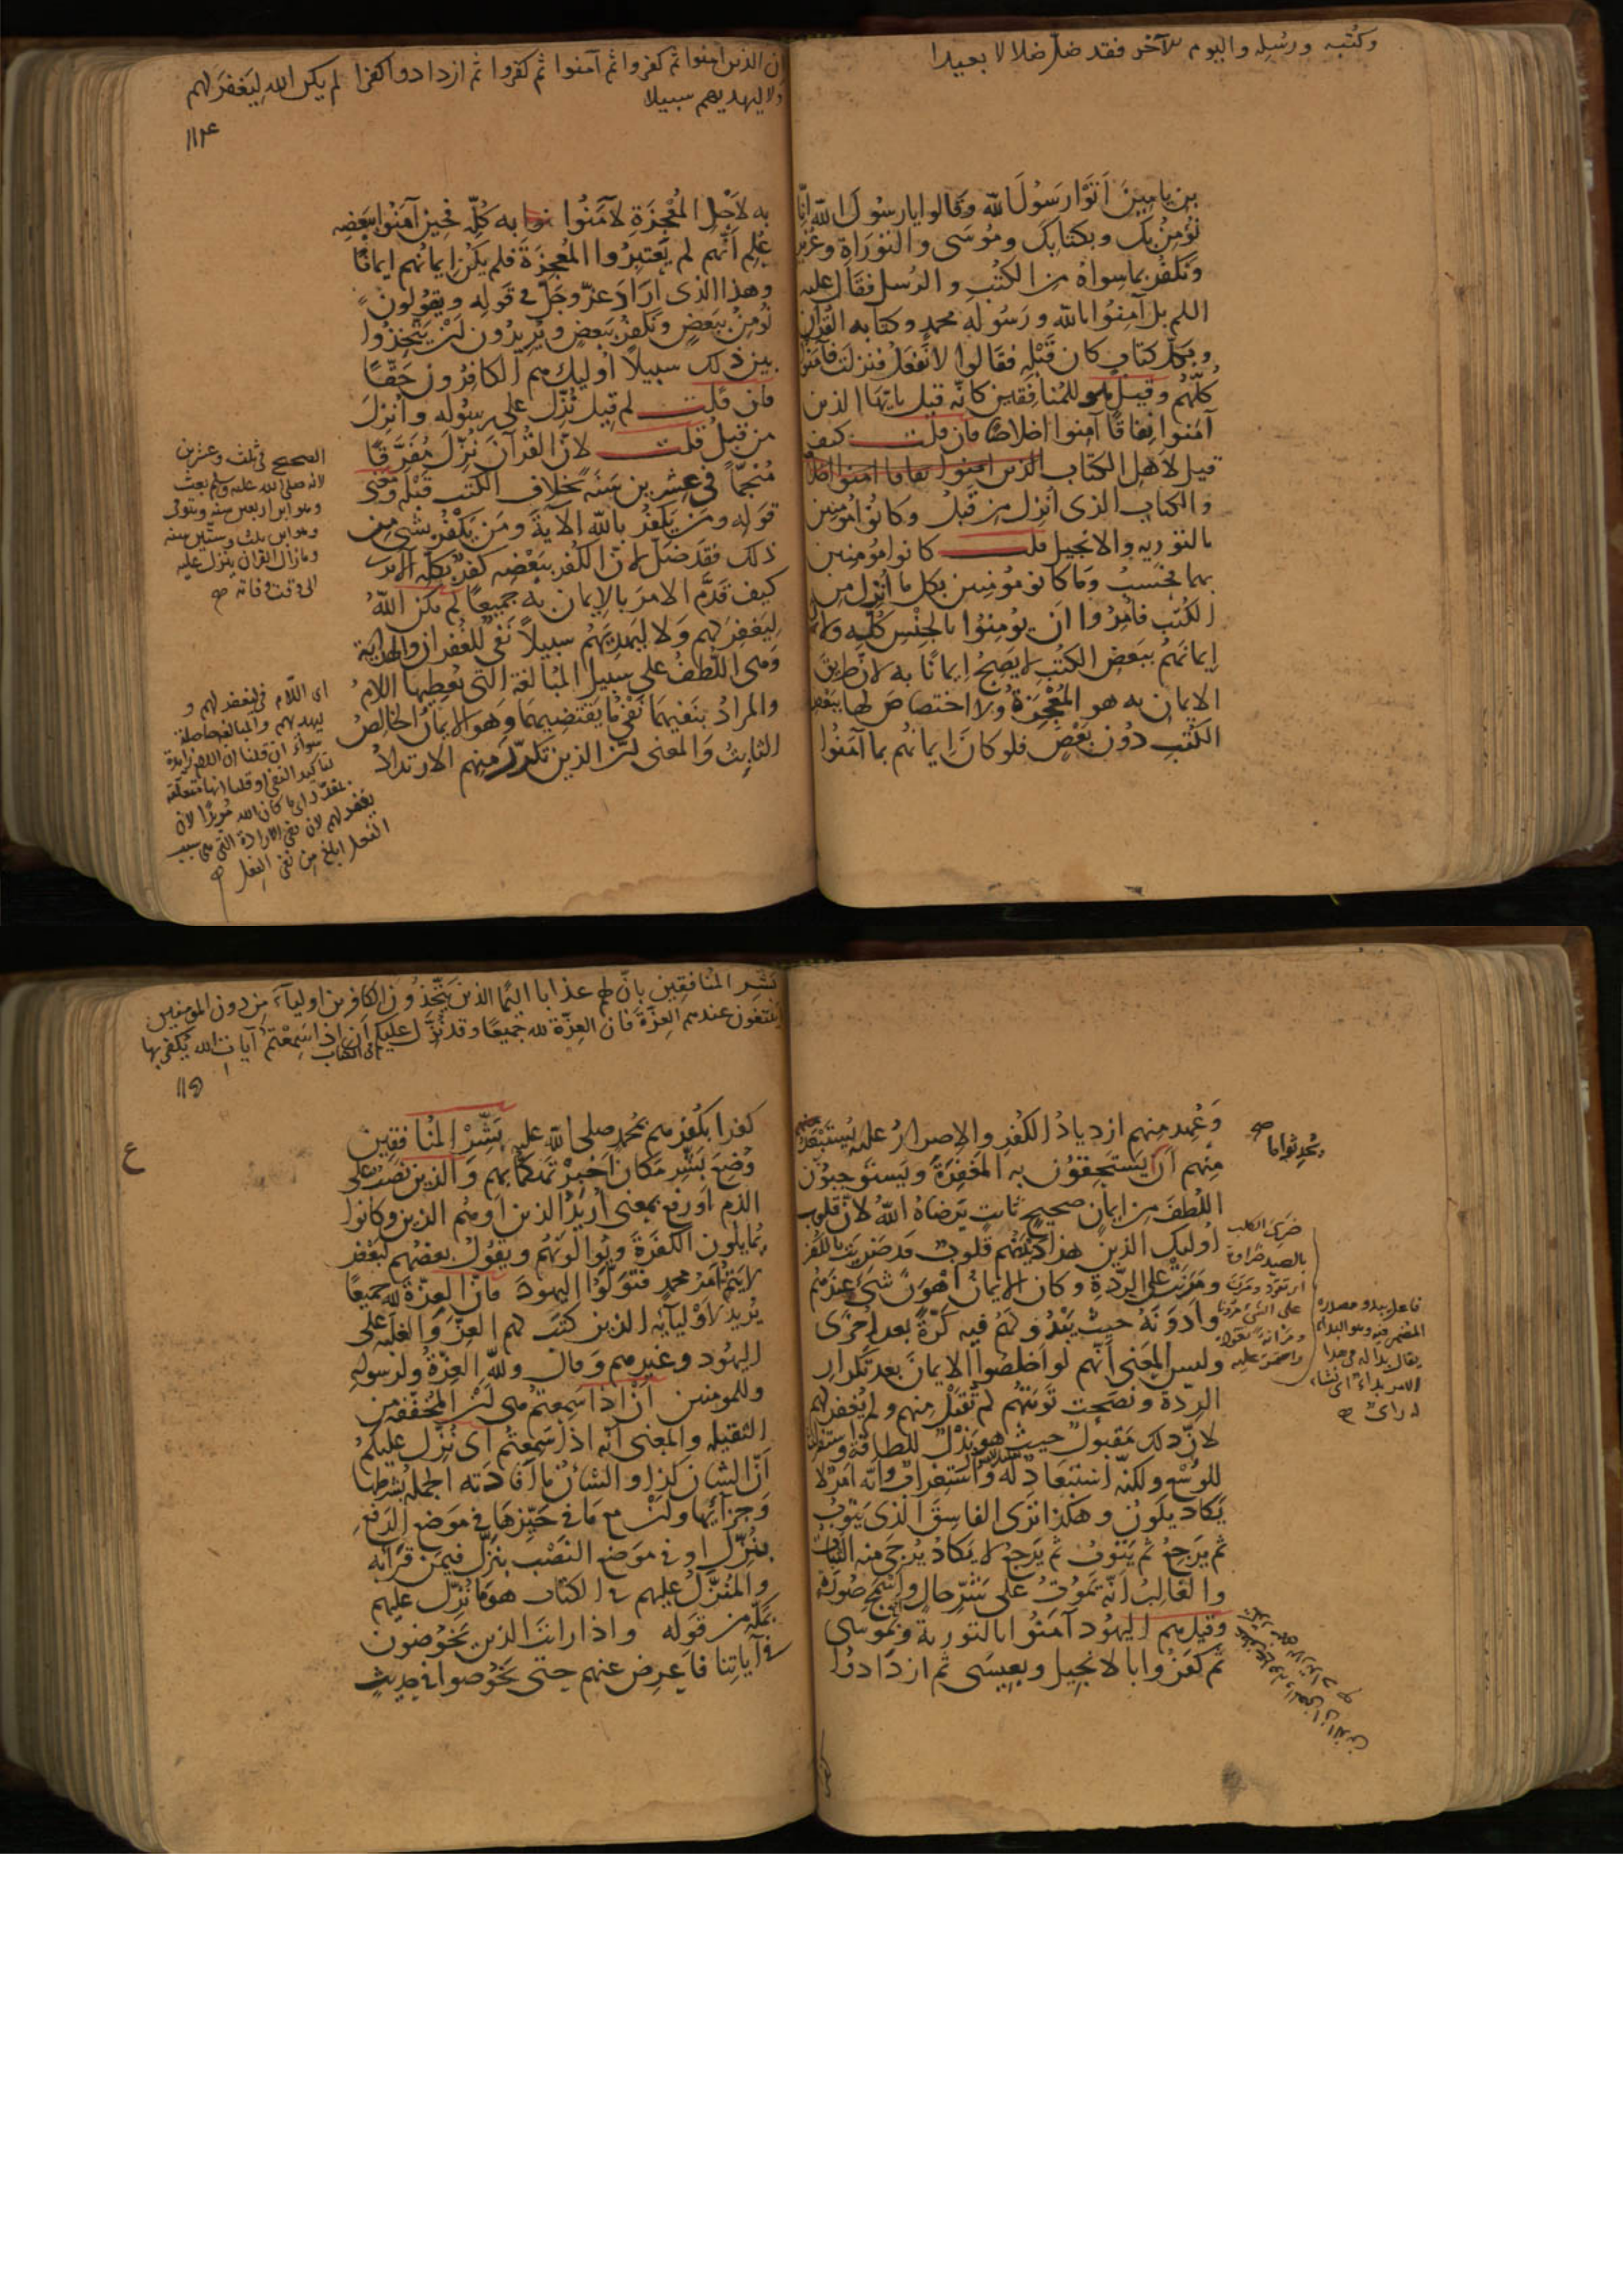 وكتبه ورسله واليوم الآخر فقد ضل ضلالا بعيدا
بن يامين اتوا رسول الله وقالوا يا رسول الله انا
نؤمن بك وبكتابك وموسى والتوراة وعزير
ونكفر بما سواه من الكتب والرسل فقال عليه
السلم بل آمنوا بالله ورسوله محمد وكتابه القرآن
وبكل كتاب كان قبله فقالوا لا نفعل فنزلت فآمنوا
كلهم وقيل هو للمنافقين كانه قيل يا يها الذين
آمنوا نفاقا آمنوا اخلاصا فان قلت كيف
قيل لاهل الكتاب الذين امنوا نفاقا امنوا
والكتاب الذى انزل من قبل وكانوا مؤمنين
بالتورية والانجيل قلت كانوا مؤمنين
بهما فحسب وما كانوا مؤمنين بكل ما انزل من
الكتب فامروا ان يؤمنوا بالجنس كله ولان
ايمانهم ببعض الكتب لا يصح ايمانا به لان طريق
الايمان به هو المعجزة ولا اختصاص لها ببعض
الكتب دون بعض فلو كان ايمانهم بما آمنوا
ان الذين امنوا ثم كفروا ثم آمنوا ثم كفروا ثم ازدادوا كفرا لم يكن الله ليغفر لهم
ولا ليهديهم سبيلا
١١٤
به لاجل المعجزة لآمنوا به كله فحين آمنوا ببعضه
علم انهم لم يعتبروا المعجزة فلم يكن ايمانهم ايمانا
وهذا الذى اراد عز وجل فى قوله ويقولون
نؤمن ببعض ونكفر ببعض ويريدون ان يتخذوا
بين ذلك سبيلا اوليك هم الكافرون حقا
فان قلت لم قيل نزل على رسوله وانزل
من قبل قلت لان القرآن نزل مفرقا
منجما فى عشرين سنة بخلاف الكتب قبله ومعنى
قوله ومن يكفر بالله الآية ومن يكفر بشى من
ذلك فقد ضل لان الكفر ببعضه كفر بكله الا ترى
كيف قدم الامر بالايمان به جميعا لم يكن الله
ليغفر لهم ولا ليهديهم سبيلا نفى للغفران والهداية
وهى اللطف على سبيل المبالغة التى تعطيها اللام
والمراد بنفيهما نفى ما يقتضيهما وهو الايمان الخالص
الثابت والمعنى ان الذين تكرر منهم الارتداد
الصحيح فى ثلث وعشرين
لانه صلى الله عليه وسلم بعث
وهو ابن اربعين سنة وتوفى
وهو ابن ثلث وستين سنة
وما زال القرآن ينزل عليه
الى وقت وفاته
اى اللام فى ليغفر لهم و
ليهديهم والمبالغة حاصلة
سواء ان قلنا ان اللام زايدة
لتاكيد النفى او قلنا انها متعلقة
بمقدر اى ما كان الله مريدا لان
يغفر لهم لان نفى الارادة التى هى سبب
الفعل ابلغ من نفى الفعل
وعهد منهم ازدياد الكفر والاصرار عليه يستبعد
منهم ان يستحقون به المغفرة ويستوجبون
اللطف من ايمان صحيح ثابت يرضاه الله لان قلوب
اوليك الذين هذا ديدنهم قلوب قد ضريت بالكفر
ومرنت على الردة وكان الايمان اهون شى عندهم
وادونه حيث يبدو لهم فيه كرة بعد اخرى
وليس المعنى انهم لو اخلصوا الايمان بعد تكرار
الردة ونصحت توبتهم لم تقبل منهم ولم يغفر لهم
لان ذلك مقبول حيث هو بذل للطاقة واستفراغ
للوسع ولكنه استبعاد له واستغراب وانه امر لا
يكاد يكون وهكذا نرى الفاسق الذى يتوب
ثم يرجع ثم يتوب ثم يرجع لا يكاد يرجى منه الثبات
والغالب انه يموت على شر حال واسمج صورة
وقيل هم اليهود آمنوا بالتورية وبموسى
ثم كفروا بالانجيل وبعيسى ثم ازدادوا
ضرى الكلب
بالصيد ضراوة
اى تعود ومرن
على الشى مرونا
ومرانة تعود
واستمر عليه
فاعل يبدو مصدره
المضمر فيه وهو البداء
يقال بدا له فى هذا
الامر بداء اى نشا
له راى
بشر المنافقين بان لهم عذابا اليما الذين يتخذون الكافرين اولياء من دون المومنين
ايبتغون عندهم العزة فان العزة لله جميعا وقد نزل عليكم ان اذا سمعتم آيات الله يكفر بها
فى الكتاب
١١٥
ع
كفرا بكفرهم بمحمد صلى الله عليه بشر المنافقين
وضع بشر مكان اخبر تهكما بهم والذين نصب على
الذم او رفع بمعنى اريد الذين او هم الذين وكانوا
يمايلون الكفرة ويوالونهم ويقول بعضهم لبعض
لا يتم امر محمد فتولوا اليهود فان العزة لله جميعا
يريد لاوليآيه الذين كتب لهم العز والغلبة على
اليهود وغيرهم وقال ولله العزة ولرسوله
وللمومنين ان اذا سمعتم هى ان المخففة من
الثقيلة والمعنى انه اذا سمعتم اى نزل عليكم
ان الشان كذا والشان ما افادته الجملة بشرطها
وجزآيها وان مع ما فى حيزها فى موضع الرفع
بنزل او فى موضع النصب بنزل فيمن قرأ به
والمنزل عليهم فى الكتاب هو ما نزل عليهم
بمكة من قوله واذا رايت الذين يخوضون
فى آياتنا فاعرض عنهم حتى يخوضوا فى حديث